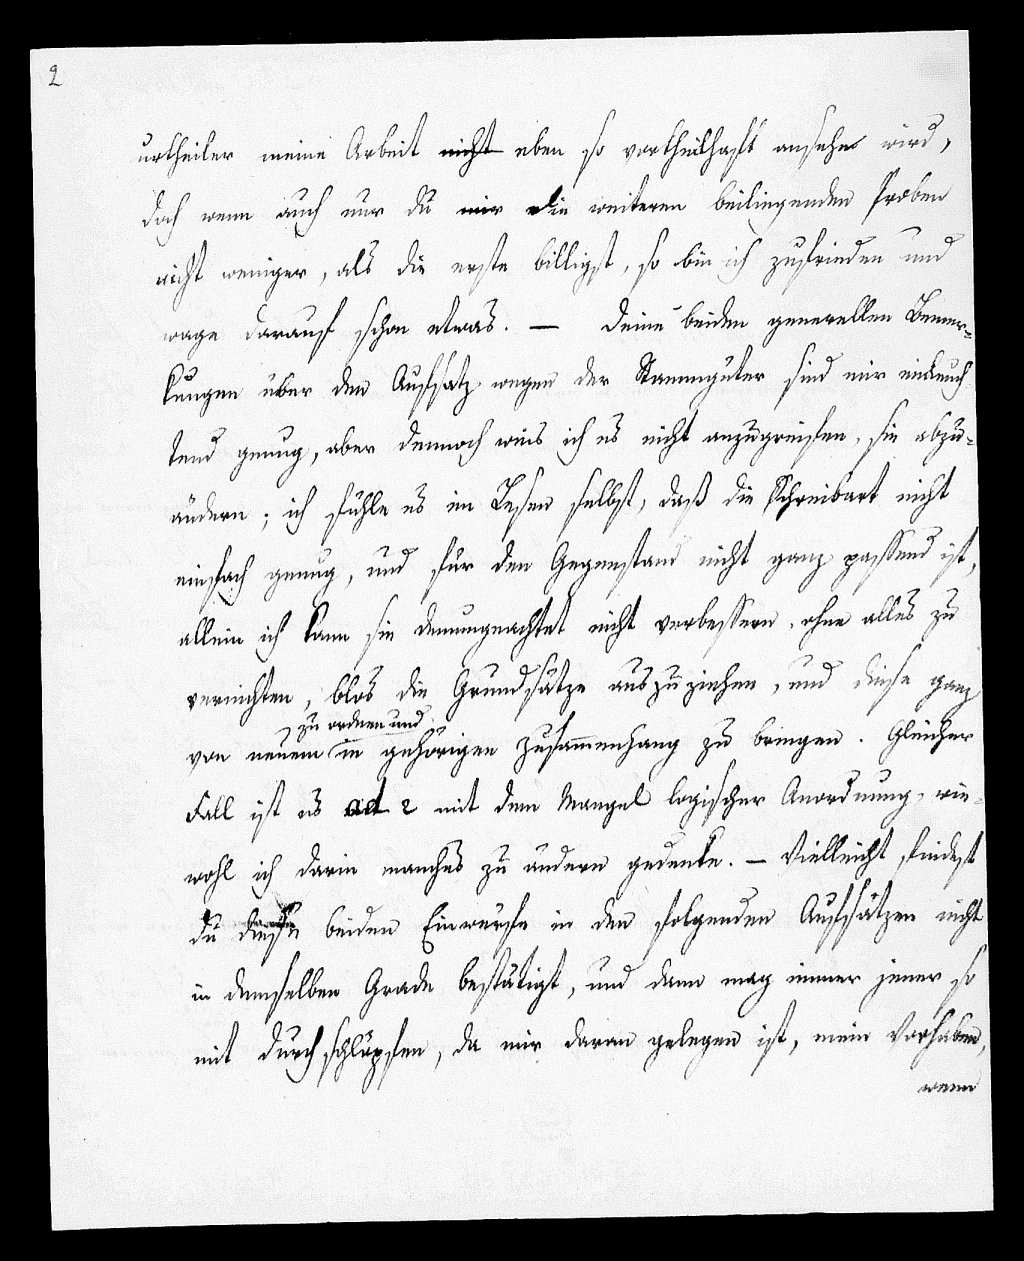 2
urtheiler meine Arbeit nicht eben so vortheilhaft ansehen wird,
doch wenn auch nur du mir die weiteren beiliegenden Proben
nicht weniger, als die erste billigst, so bin ich zufrieden und
wage darauf schon etwas. — Deine beiden generellen Bemer-
kungen über den Aufsatz wegen der Stammgüter sind mir einleuch
tend genug, aber dennoch weis ich es nicht anzugreifen, sie abzu-
ändern; ich fühle es im Lesen selbst, daß die Schreibart nicht
einfach genug, und für den Gegenstand nicht ganz passend ist,
allein ich kann sie demungeachtet nicht verbessern, ohne alles zu
vernichten, blos die Grundsätze auszuziehen, und diese ganz
zu ordnen und
von neuem in gehörigen Zusammenhang zu bringen. Gleicher
Fall ist es ad 2 mit dem Mangel logischer Anordnung, wie-
wohl ich darin manches zu ändern gedenke. — Vielleicht findest
du diese beiden Einwürfe in den folgenden Aufsätzen nicht
in demselben Grade bestätigt, und dann mag immer jener so
mit durchschlüpfen, da mir daran gelegen ist, mein Vorhaben,
wenn